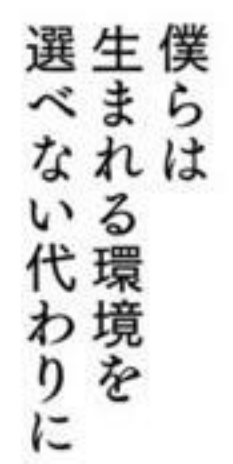 僕らは
生まれる環境を
選べない代わりに